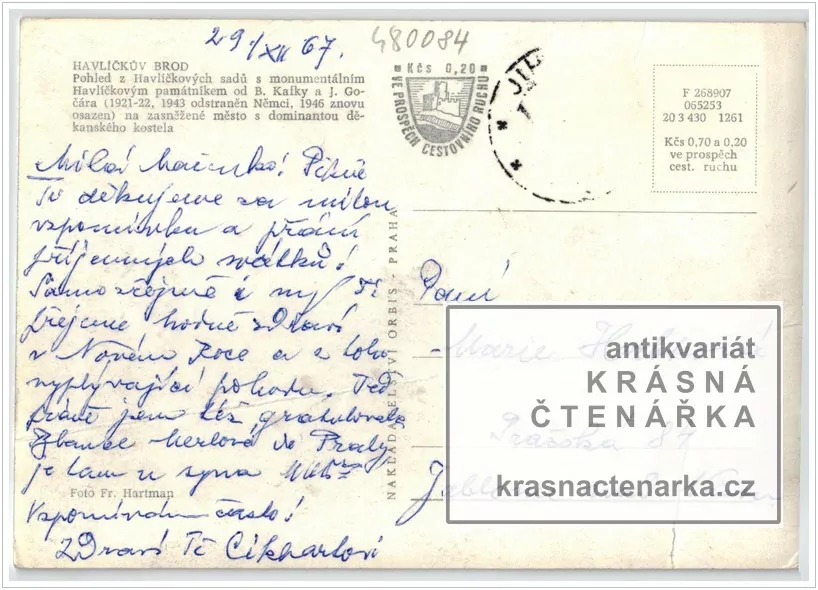 29/XII 67.
480084
HAVLÍČKŮV BROD
Pohled z Havlíčkových sadů s monumentálním
Havlíčkovým památníkem od B. Kafky a J. Go-
čára (1921-22, 1943 odstraněn Němci, 1946 znovu
osazen) na zasněžené město s dominantou dě-
kanského kostela
Kčs 0,20
VE PROSPĚCH CESTOVNÍHO RUCHU
F 268907
065253
20 3 430 1261
Kčs 0,70 a 0,20
ve prospěch
cest. ruchu
Milá Mařenko! Pěkně
Ti děkujeme za milou
vzpomínku a přání
příjemných svátků!
Samozřejmě i my Ti
přejeme hodně zdraví
v Novém Roce a z toho
vyplývající pohodu. Teď
právě jsem též gratulovala
do Prahy
je tam u syna
Vzpomínám často!
Zdraví Tě Cikhartovi
Foto Fr. Hartman
NAKLADATELSTVÍ ORBIS - PRAHA
Paní
Marie
Pražská 87
antikvariát
KRÁSNÁ
ČTENÁŘKA
krasnactenarka.cz